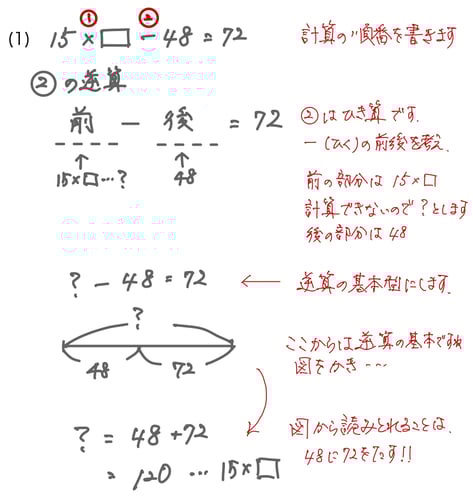 ① ②
(1) 15×□-48=72 計算の順番を書きます
②の逆算
前 - 後 = 72 ②はひき算です.
-(ひく)の前後を考え.
↑ ↑
15×□…? 48 前の部分は 15×□
計算できないので?とします
後の部分は 48
? - 48 = 72 ← 逆算の基本型にします.
?
ここからは逆算の基本ですね
48 72 図をかき…
? = 48+72 図から読みとれることは、
= 120 … 15×□ 48に72をたす!!